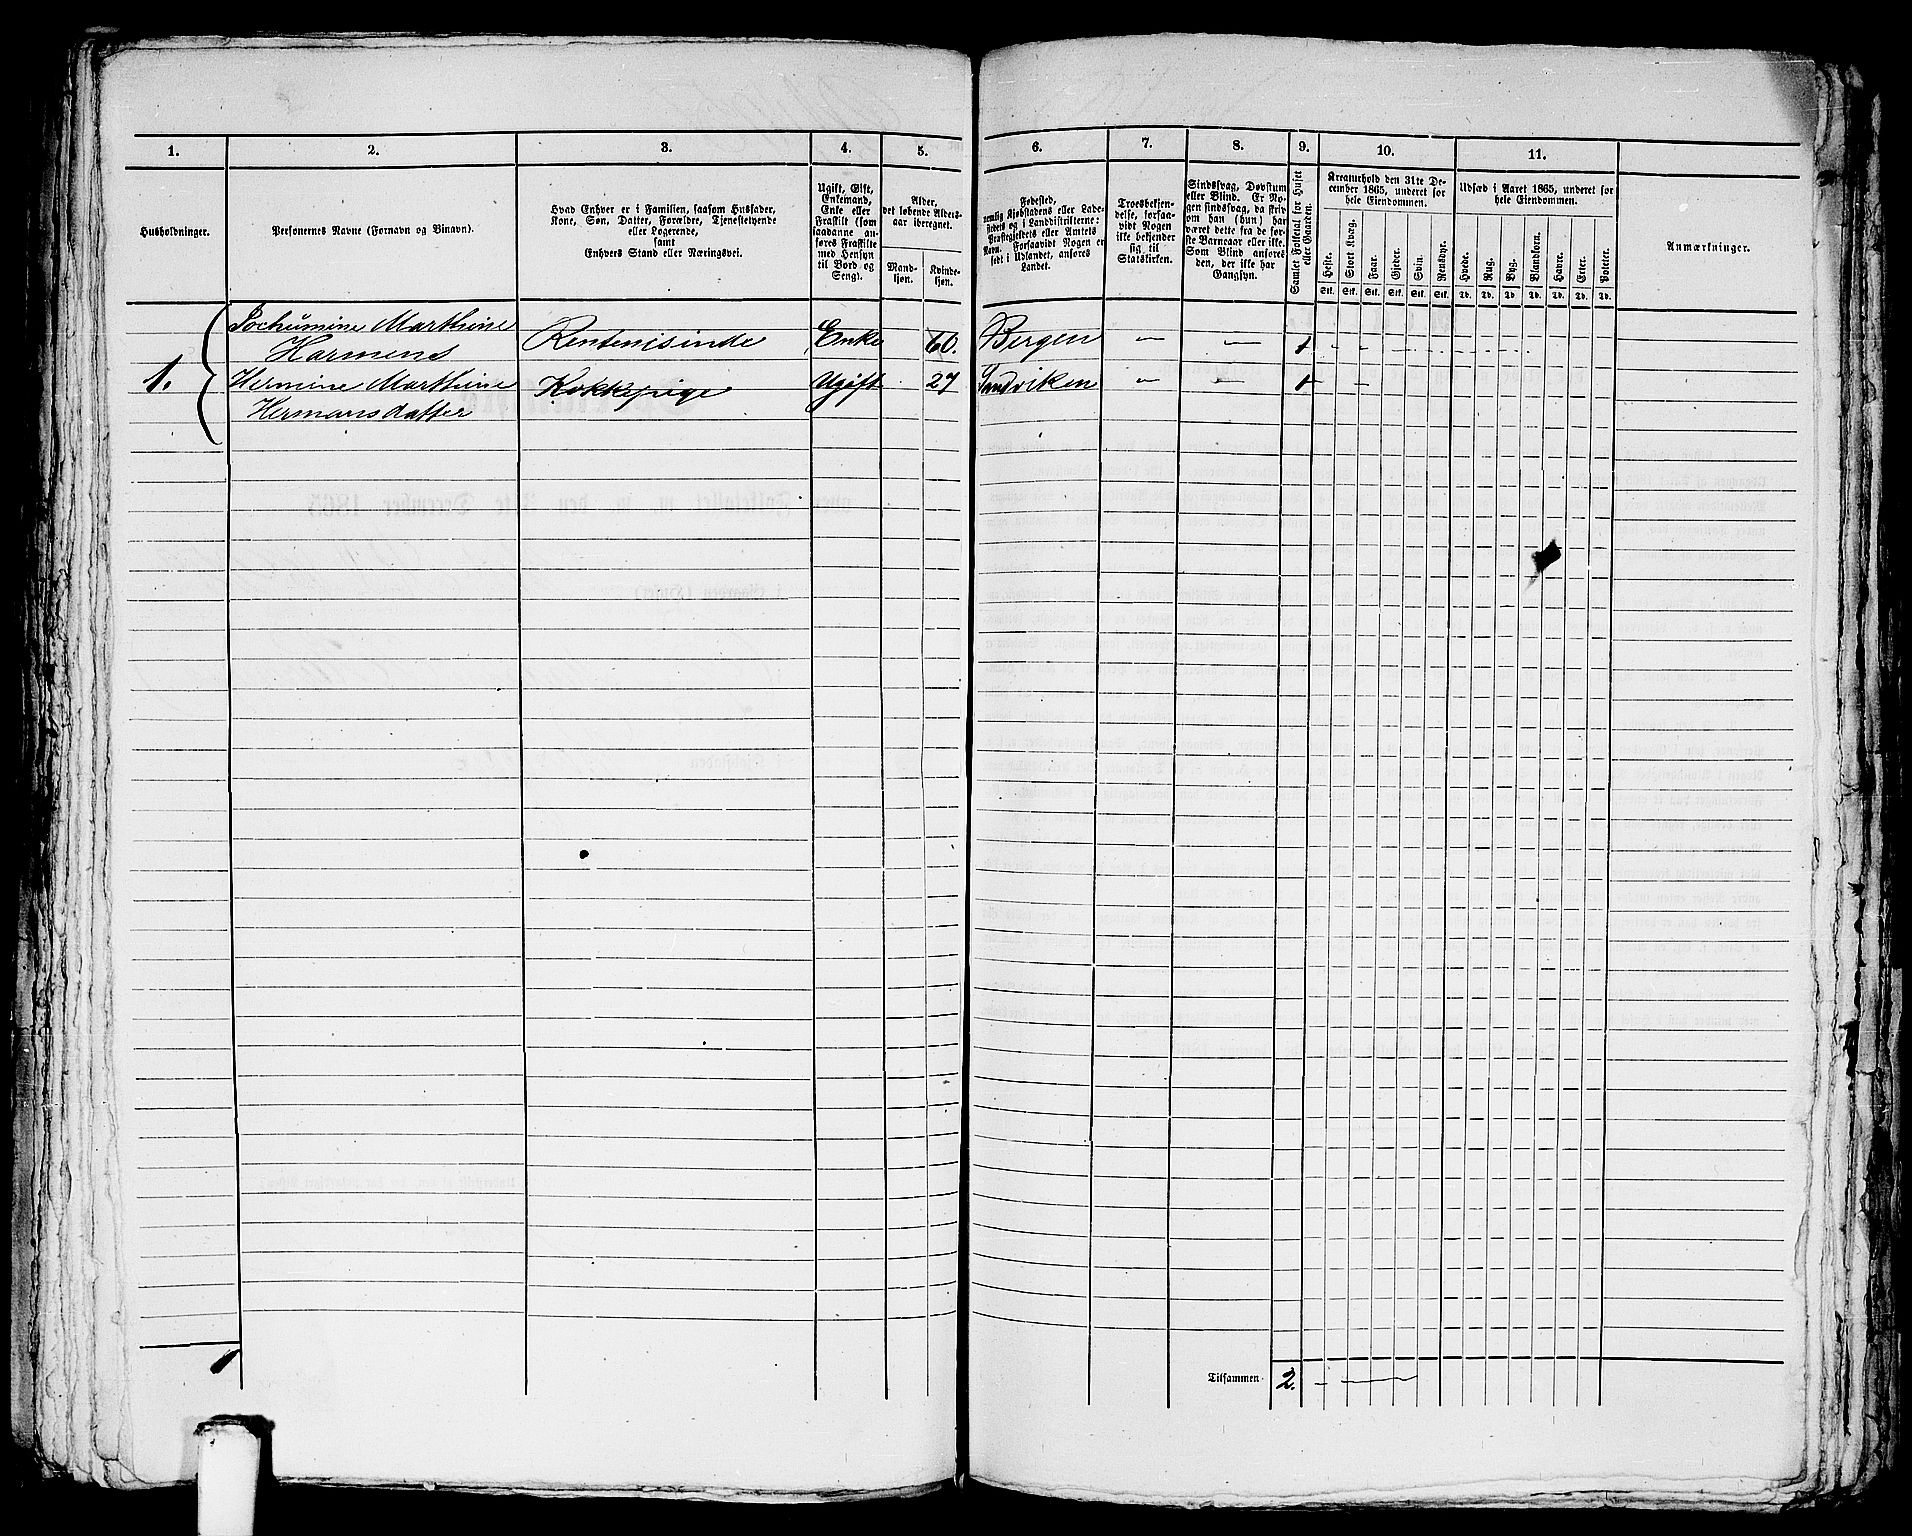 1.
2.
3.
4.
5.
6.
7.
8.
9.
10.
11.
Husholdninger.
Personernes Navne (Fornavn og Binavn).
Hvad Enhver er i Familien, saasom Husfader,
Kone, Søn, Datter, Forældre, Tjenestetyende
eller Logerende,
samt
Enhvers Stand eller Næringsvei.
Ugift, Gift,
Enkemand,
Enke eller
Fraskilt (som
saadanne an-
føres Fraskilte
med Hensyn
til Bord og
Seng).
Alder,
det løbende Alders-
aar iberegnet.
Mand-
kjøn.
Kvinde-
kjøn.
Fødested,
nemlig Kjøbstadens eller Lade-
stedets og i Landdistrikterne:
Præstegjeldets eller Amtets
Navn. Forsaavidt Nogen er
født i Udlandet, anføres
Landet.
Troesbekjen-
delse, forsaa-
vidt Nogen
ikke bekjender
sig til
Statskirken.
Sindssvag, Døvstum
eller Blind. Er No-
gen sindssvag, da skriv
om han (hun) har
været dette fra de før-
ste Barneaar eller ikke.
Som Blind anføres
den, der ikke har
Gangsyn.
Samlet Folketal for Huset
eller Gaarden.
Kreaturhold den 31te De-
cember 1865, underet for
hele Eiendommen.
Heste.
Stort Kvæg.
Faar.
Gjeder.
Svin.
Rensdyr.
Stk. Stk. Stk. Stk. Stk. Stk.
Udsæd i Aaret 1865, underet for
hele Eiendommen.
Hvede.
Rug.
Byg.
Blandkorn.
Havre.
Erter.
Poteter.
Td. Td. Td. Td. Td. Td. Td.
Anmærkninger.
1.
Jochumine Marthine
Harmens
Rentenisinde Enke 60. Bergen — — 1 — — — — — —
Hermine Marthine
Hermansdatter
Kokkepige Ugift 27 Sandviken — — 1 — —
1
Tilsammen 2. — —